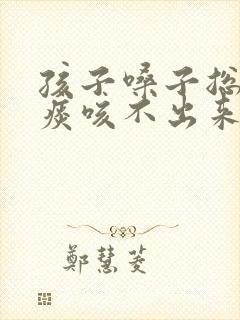 孩子嗓子总
痰咳不出来
鄭慧菱